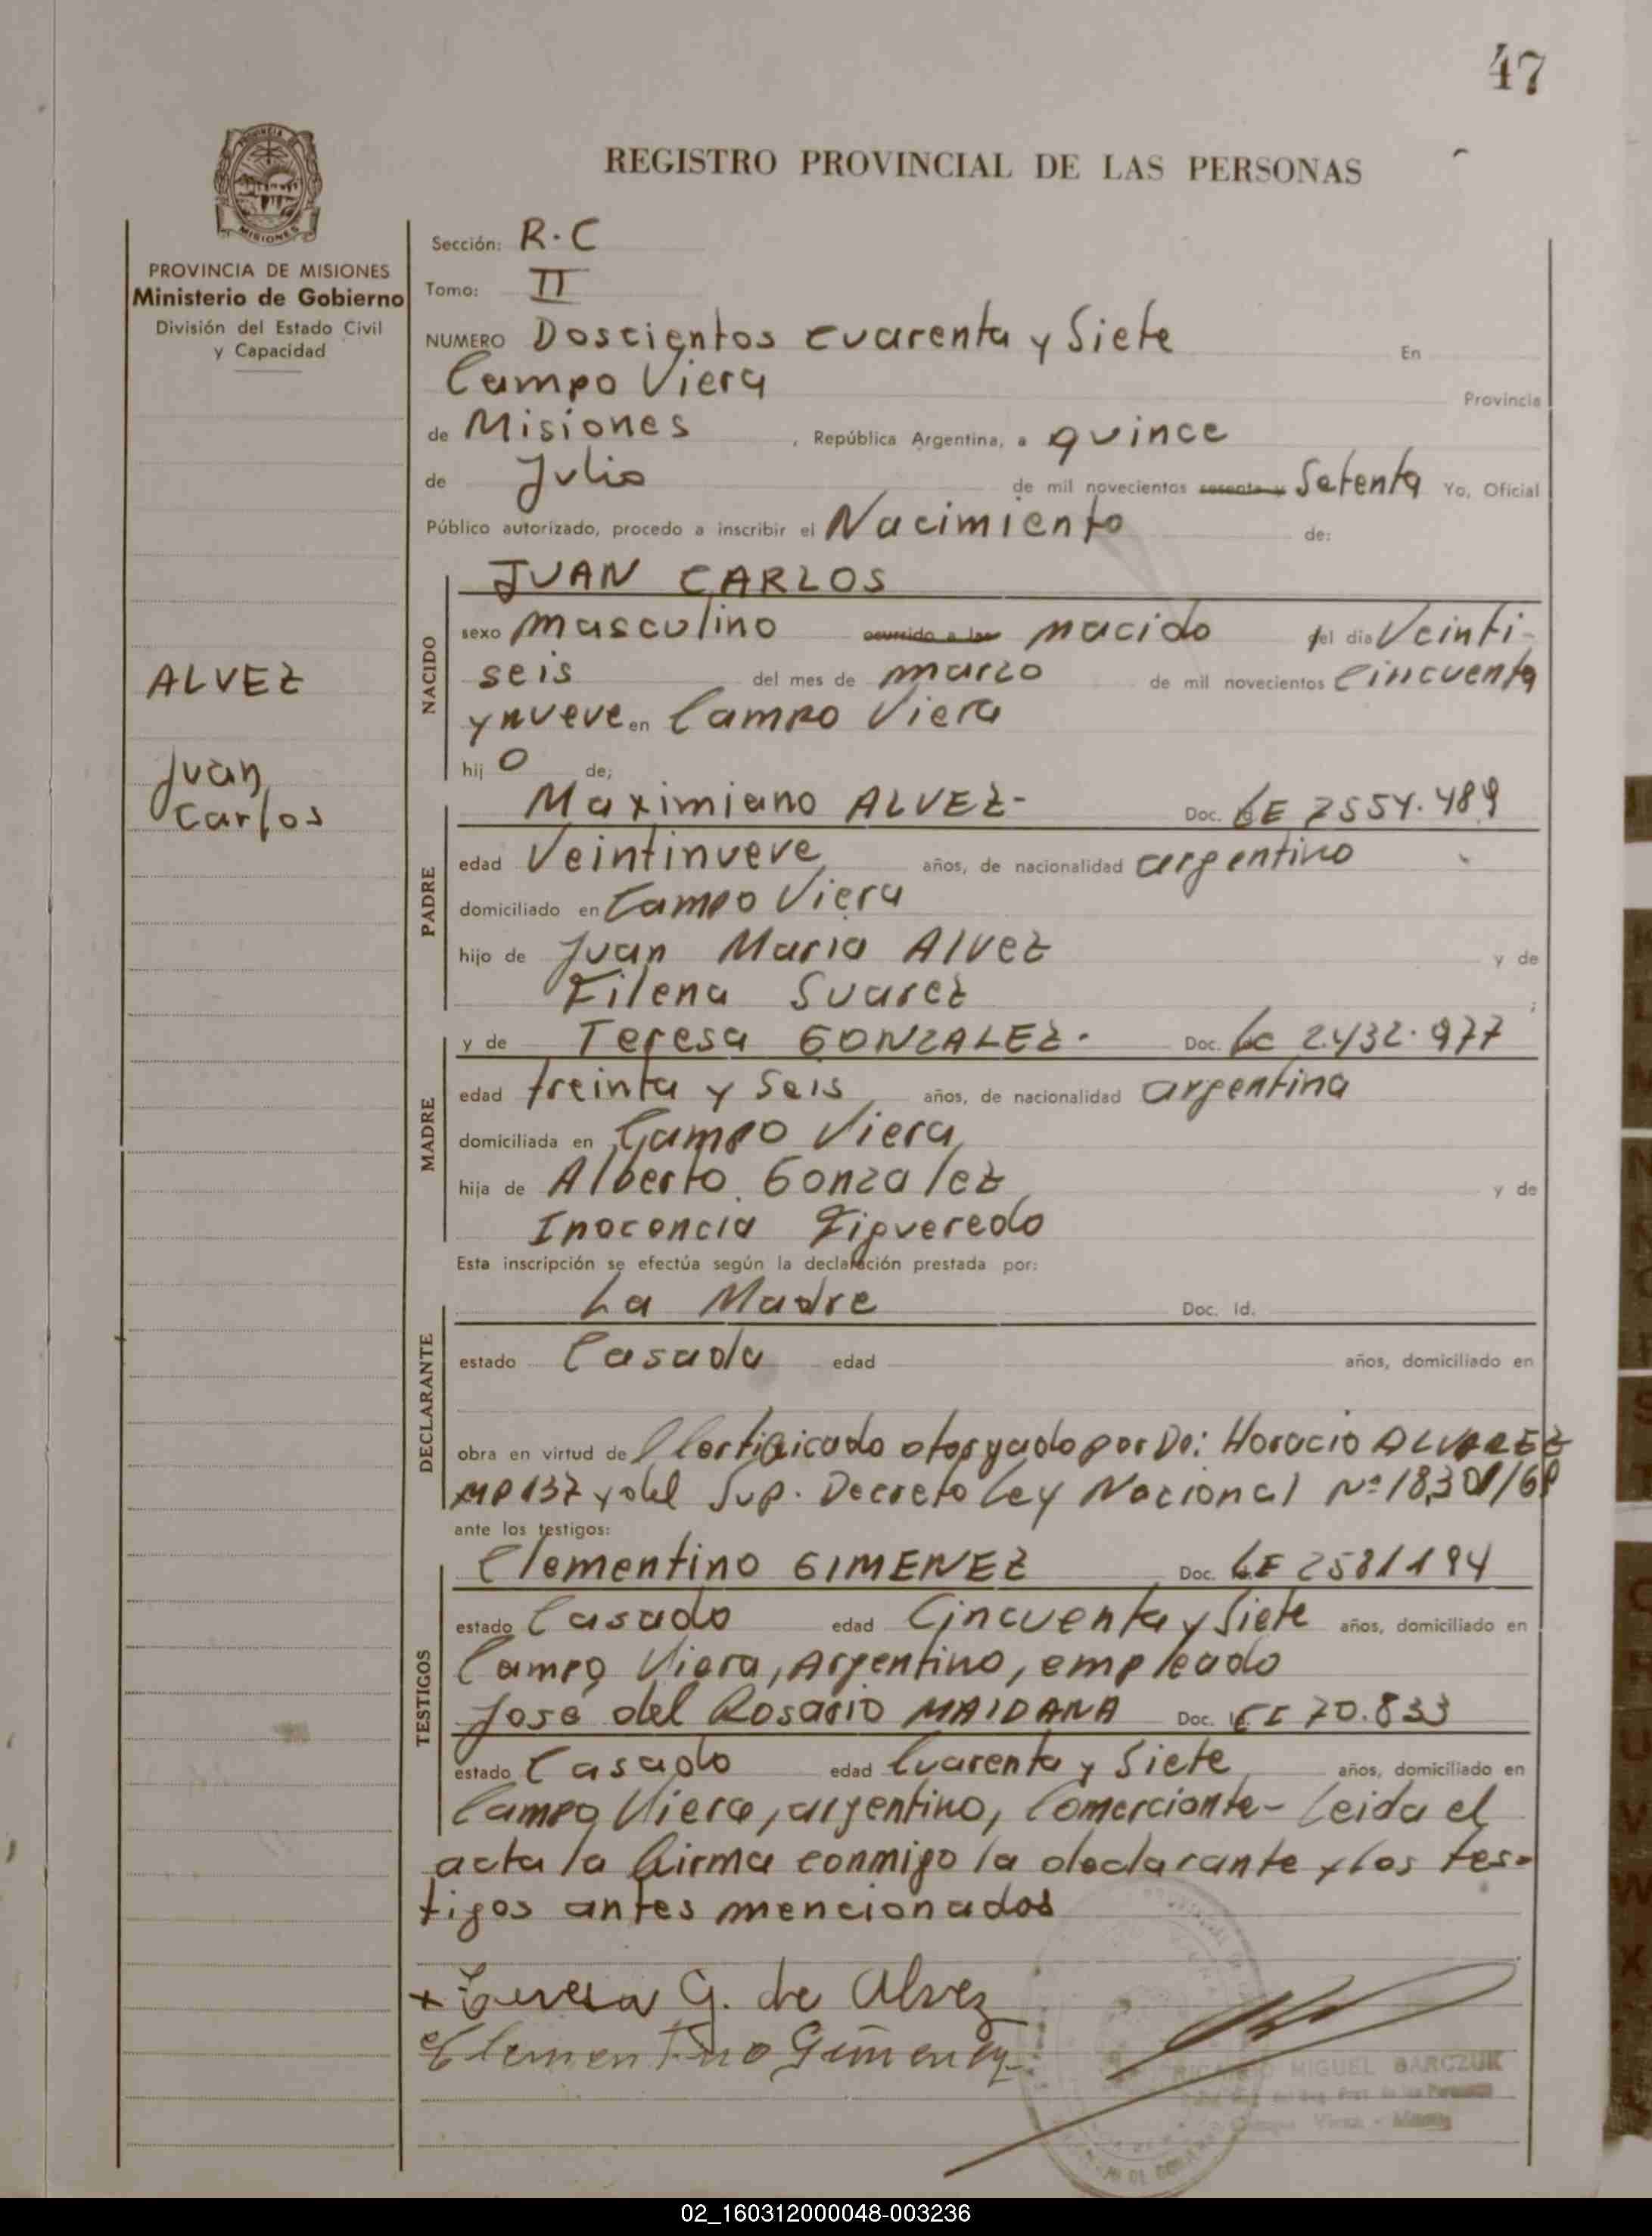 47
REGISTRO PROVINCIAL DE LAS PERSONAS
MISIONES
PROVINCIA DE MISIONES
Ministerio de Gobierno
División del Estado Civil
y Capacidad
ALVEZ
Juan
Carlos
Sección: R.C
Tomo: II
NUMERO Doscientos cuarenta y Siete En
Campo Viera Provincia
de Misiones , República Argentina, a quince
de Julio de mil novecientos sesenta y Setenta Yo, Oficial
Público autorizado, procedo a inscribir el Nacimiento de:
NACIDO
JUAN CARLOS
sexo masculino ocurrido a las nacido el día Veinti-
seis del mes de marzo de mil novecientos Cincuenta
y nueve en Campo Viera
hij o de;
PADRE
Maximiano ALVEZ- Doc. LE 7554.489
edad Veintinueve años, de nacionalidad argentino
domiciliado en Campo Viera
hijo de Juan Maria Alvez y de
Filena Suarez ;
MADRE
y de Teresa GONZALEZ. Doc. LC 2.432.977
edad treinta y seis años, de nacionalidad argentina
domiciliada en Campo Viera
hija de Alberto Gonzalez y de
Inocencia Figueredo
Esta inscripción se efectúa según la declaración prestada por:
DECLARANTE
La Madre Doc. Id.
estado Casada edad años, domiciliado en
obra en virtud de Certificado otorgado por Dr: Horacio ALVAREZ
MP 137 y del Sup. Decreto Ley Nacional Nº 18,301/69
ante los testigos:
TESTIGOS
Clementino GIMENEZ Doc. LE 2581194
estado Casado edad Cincuenta y Siete años, domiciliado en
Campo Viera, Argentino, empleado
José del Rosario MAIDANA Doc. CI 70.833
estado Casado edad Cuarenta y Siete años, domiciliado en
Campo Viera, argentino, Comerciante- Leida el
acta la firma conmigo la declarante y los tes-
tigos antes mencionados
+ Teresa G. de Alvez
Clementino Gimenez
MIGUEL BARCZUK
02_160312000048-003236